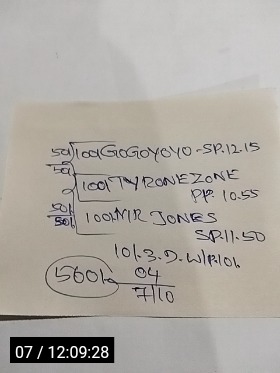 50/ 100/ GOGOYOYO - SP.12.15
50/
0 100/ TYRONEZONE
PP. 10.55
50/
50/ 100/ MR JONES
SP.11.50
10/. 3. D. W/P.10/.
560/. 04
7/10
07 / 12:09:28